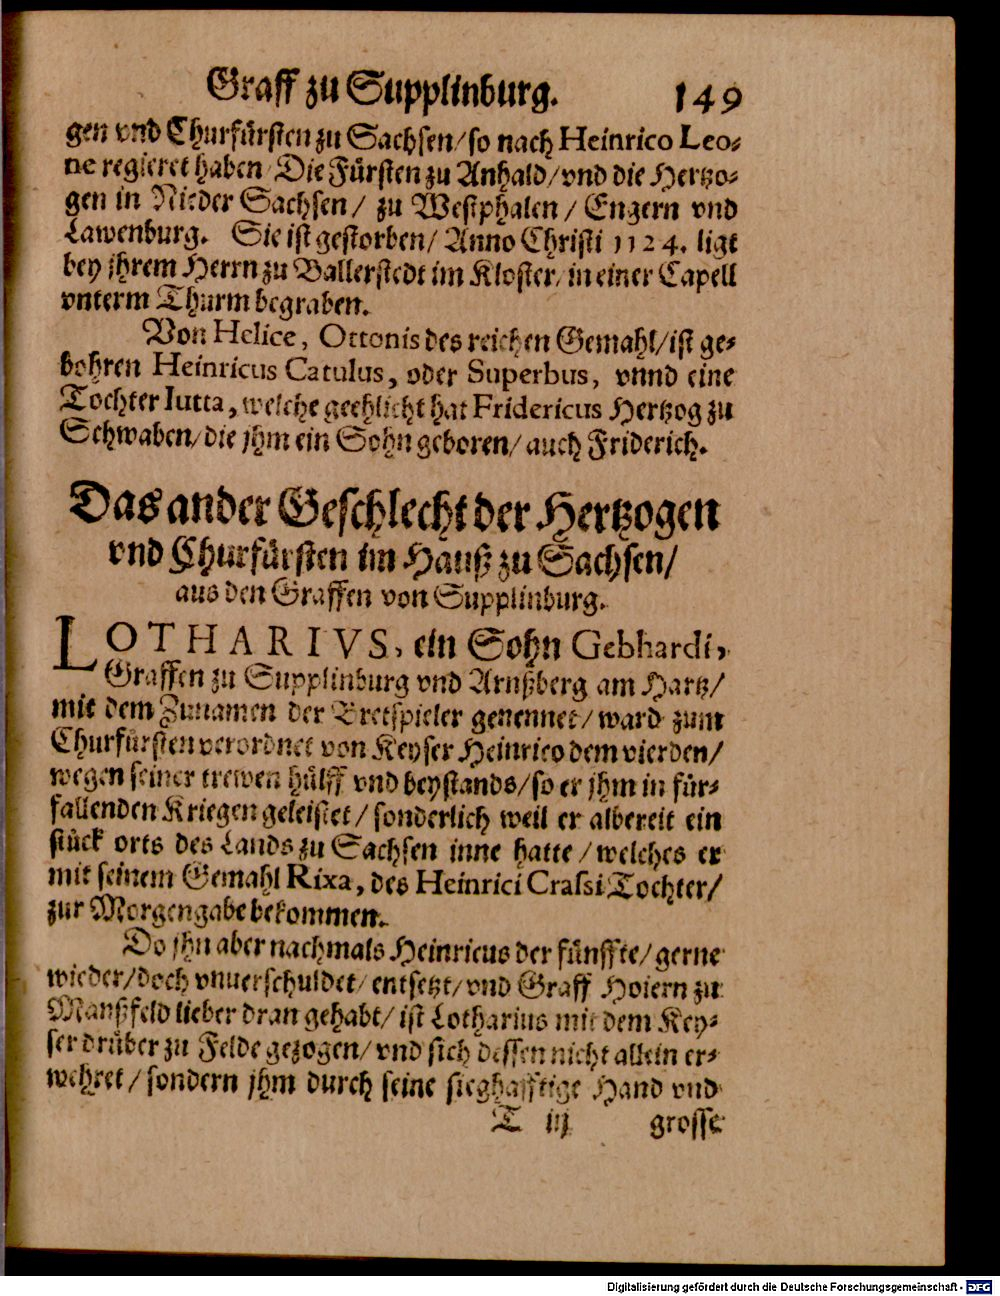 Graff zu Supplinburg. 149
gen vnd Churfürsten zu Sachsen/ so nach Heinrico Leo-
ne regieret haben/ Die Fürsten zu Anhald/ vnd die Hertzo-
gen in Nieder Sachsen/ zu Westphalen/ Engern vnd
Lawenburg. Sie ist gestorben/ Anno Christi 1124. ligt
bey jhrem Herrn zu Ballerstedt im Kloster/ in einer Capell
vnterm Thurm begraben.
Von Helice, Ottonis des reichen Gemahl/ ist ge-
bohren Heinricus Catulus, oder Superbus, vnnd eine
Tochter Iutta, welche geehlicht hat Fridericus Hertzog zu
Schwaben/ die jhm ein Sohn geboren/ auch Friderich.
Das ander Geschlecht der Hertzogen
vnd Churfürsten im Hauß zu Sachsen/
aus den Graffen von Supplinburg.
LOTHARIVS, ein Sohn Gebhardi,
Graffen zu Supplinburg vnd Arnßberg am Hartz/
mit dem Zunamen der Bretspieler genennet/ ward zum
Churfürsten verordnet von Keyser Heinrico dem vierden/
wegen seiner trewen hülff vnd beystands/ so er jhm in für-
fallenden Kriegen geleistet/ sonderlich weil er albereit ein
stück orts des Lands zu Sachsen inne hatte/ welches er
mit seinem Gemahl Rixa, des Heinrici Crassi Tochter/
zur Morgengabe bekommen.
Do jhn aber nachmals Heinricus der fünffte/ gerne
wieder/ doch vnuerschuldet/ entsetzt/ vnd Graff Hoiern zu
Manßfeld lieber dran gehabt/ ist Lotharius mit dem Key-
ser drüber zu Felde gezogen/ vnd sich dessen nicht allein er-
wehret/ sondern jhm durch seine sieghafftige Hand vnd
T iij grosse
Digitalisierung gefördert durch die Deutsche Forschungsgemeinschaft - DFG